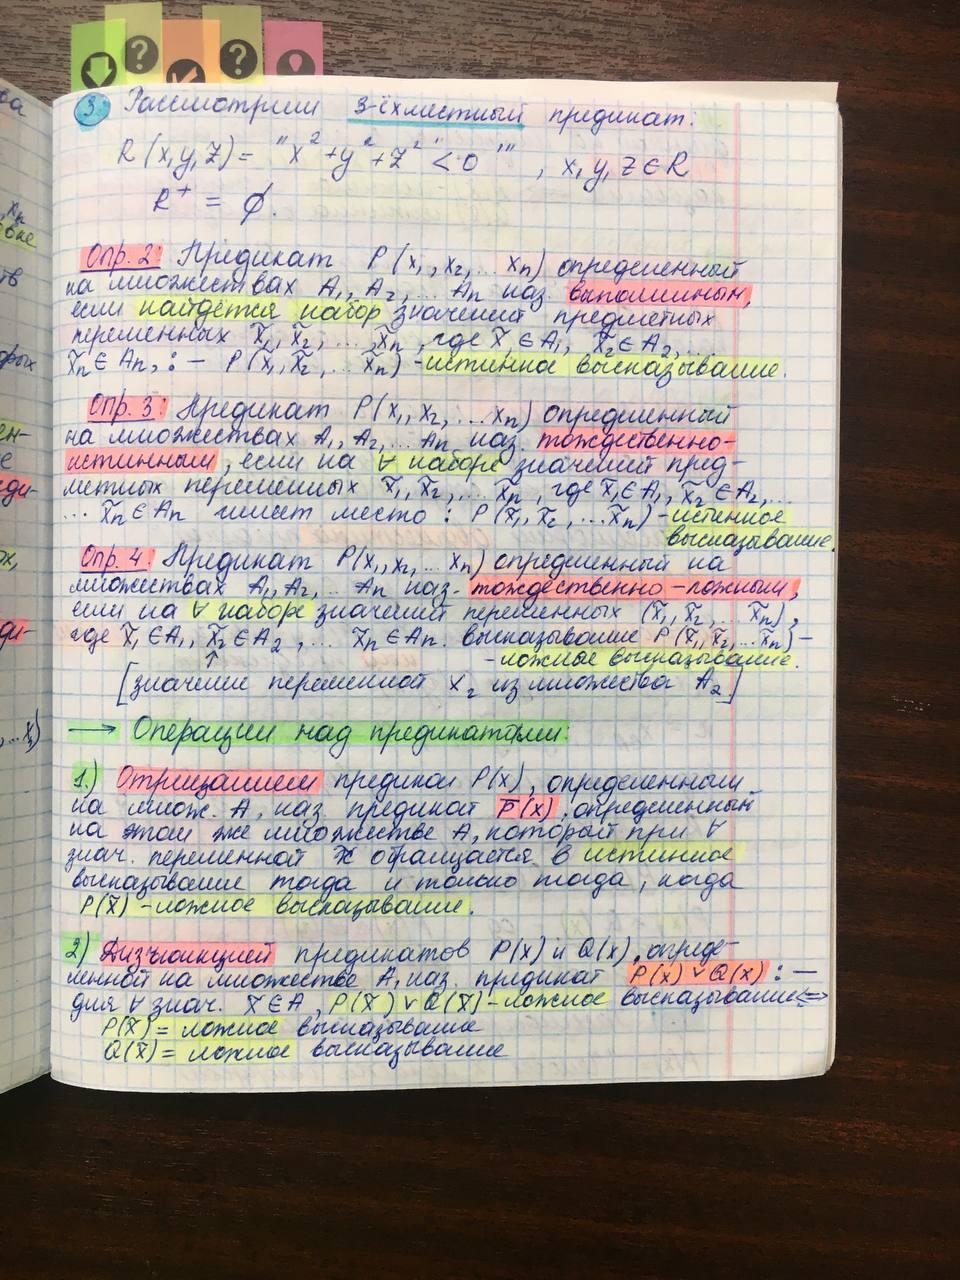 3. Рассмотрим 3-ёхместный предикат:
R(x,y,z) = "x² + y² + z² < 0", x,y,z ∈ R
R⁺ = ∅.
Опр. 2: Предикат P(x₁, x₂, ... xₙ) определённый
на множествах A₁, A₂, ... Aₙ наз. выполнимым,
если найдётся набор значений предметных
переменных x̃₁, x̃₂, ..., x̃ₙ, где x̃₁∈A₁, x̃₂∈A₂,...
x̃ₙ∈Aₙ, : – P(x̃₁, x̃₂, ... x̃ₙ) - истинное высказывание.
Опр. 3: Предикат P(x₁, x₂, ... xₙ) определенный
на множествах A₁, A₂, ... Aₙ наз. тождественно-
истинным, если на ∀ наборе значений пред-
метных переменных x̃₁, x̃₂, ... x̃ₙ, где x̃₁∈A₁, x̃₂∈A₂,...
... x̃ₙ∈Aₙ имеет место: P(x̃₁, x̃₂, ... x̃ₙ) - истинное
высказывание.
Опр. 4 Предикат P(x₁, x₂, ... xₙ) определенный на
множествах A₁, A₂, ... Aₙ наз. тождественно-ложным,
если на ∀ наборе значений переменных (x̃₁, x̃₂, ... x̃ₙ),
где x̃₁∈A₁, x̃₂∈A₂, ... x̃ₙ∈Aₙ. высказывание P(x̃₁, x̃₂, ... x̃ₙ) -
- ложное высказывание.
[значение переменной x₂ из множества A₂]
→ Операции над предикатами:
1.) Отрицанием предиката P(x), определенным
на множ. A, наз. предикат P̄(x), определенный
на этом же множестве A, который при ∀
знач. переменной x обращается в истинное
высказывание тогда и только тогда, когда
P(x̃) - ложное высказывание.
2) Дизъюнкцией предикатов P(x) и Q(x), опреде-
лённой на множестве A, наз. предикат P(x) ∨ Q(x) : –
для ∀ знач. x̃∈A, P(x̃) ∨ Q(x̃) - ложное высказывание <=>
P(x̃) = ложное высказывание
Q(x̃) = ложное высказывание